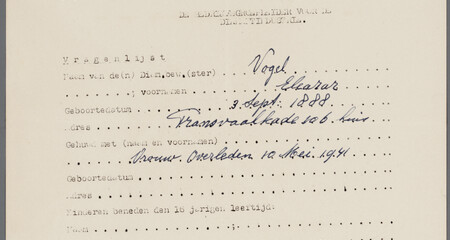 V r a g e n l i j s t
Naam van de(n) Dien.bew.(ster) . . . . Vogel . . . .
. . . . . ; voornamen . . . . Eleazar . . . .
Geboortedatum . . . . 3 Sept. 1888 . . . .
Adres . . . . Transvaalkade 106 huis . . . .
Gehuwd met (naam en voornamen) . . . .
Vrouw. Overleden 10 Mei. 1941 . . . .
Geboortedatum . . . .
Adres . . . .
Kinderen beneden den 16 jarigen leeftijd:
Naam . . . . . ;